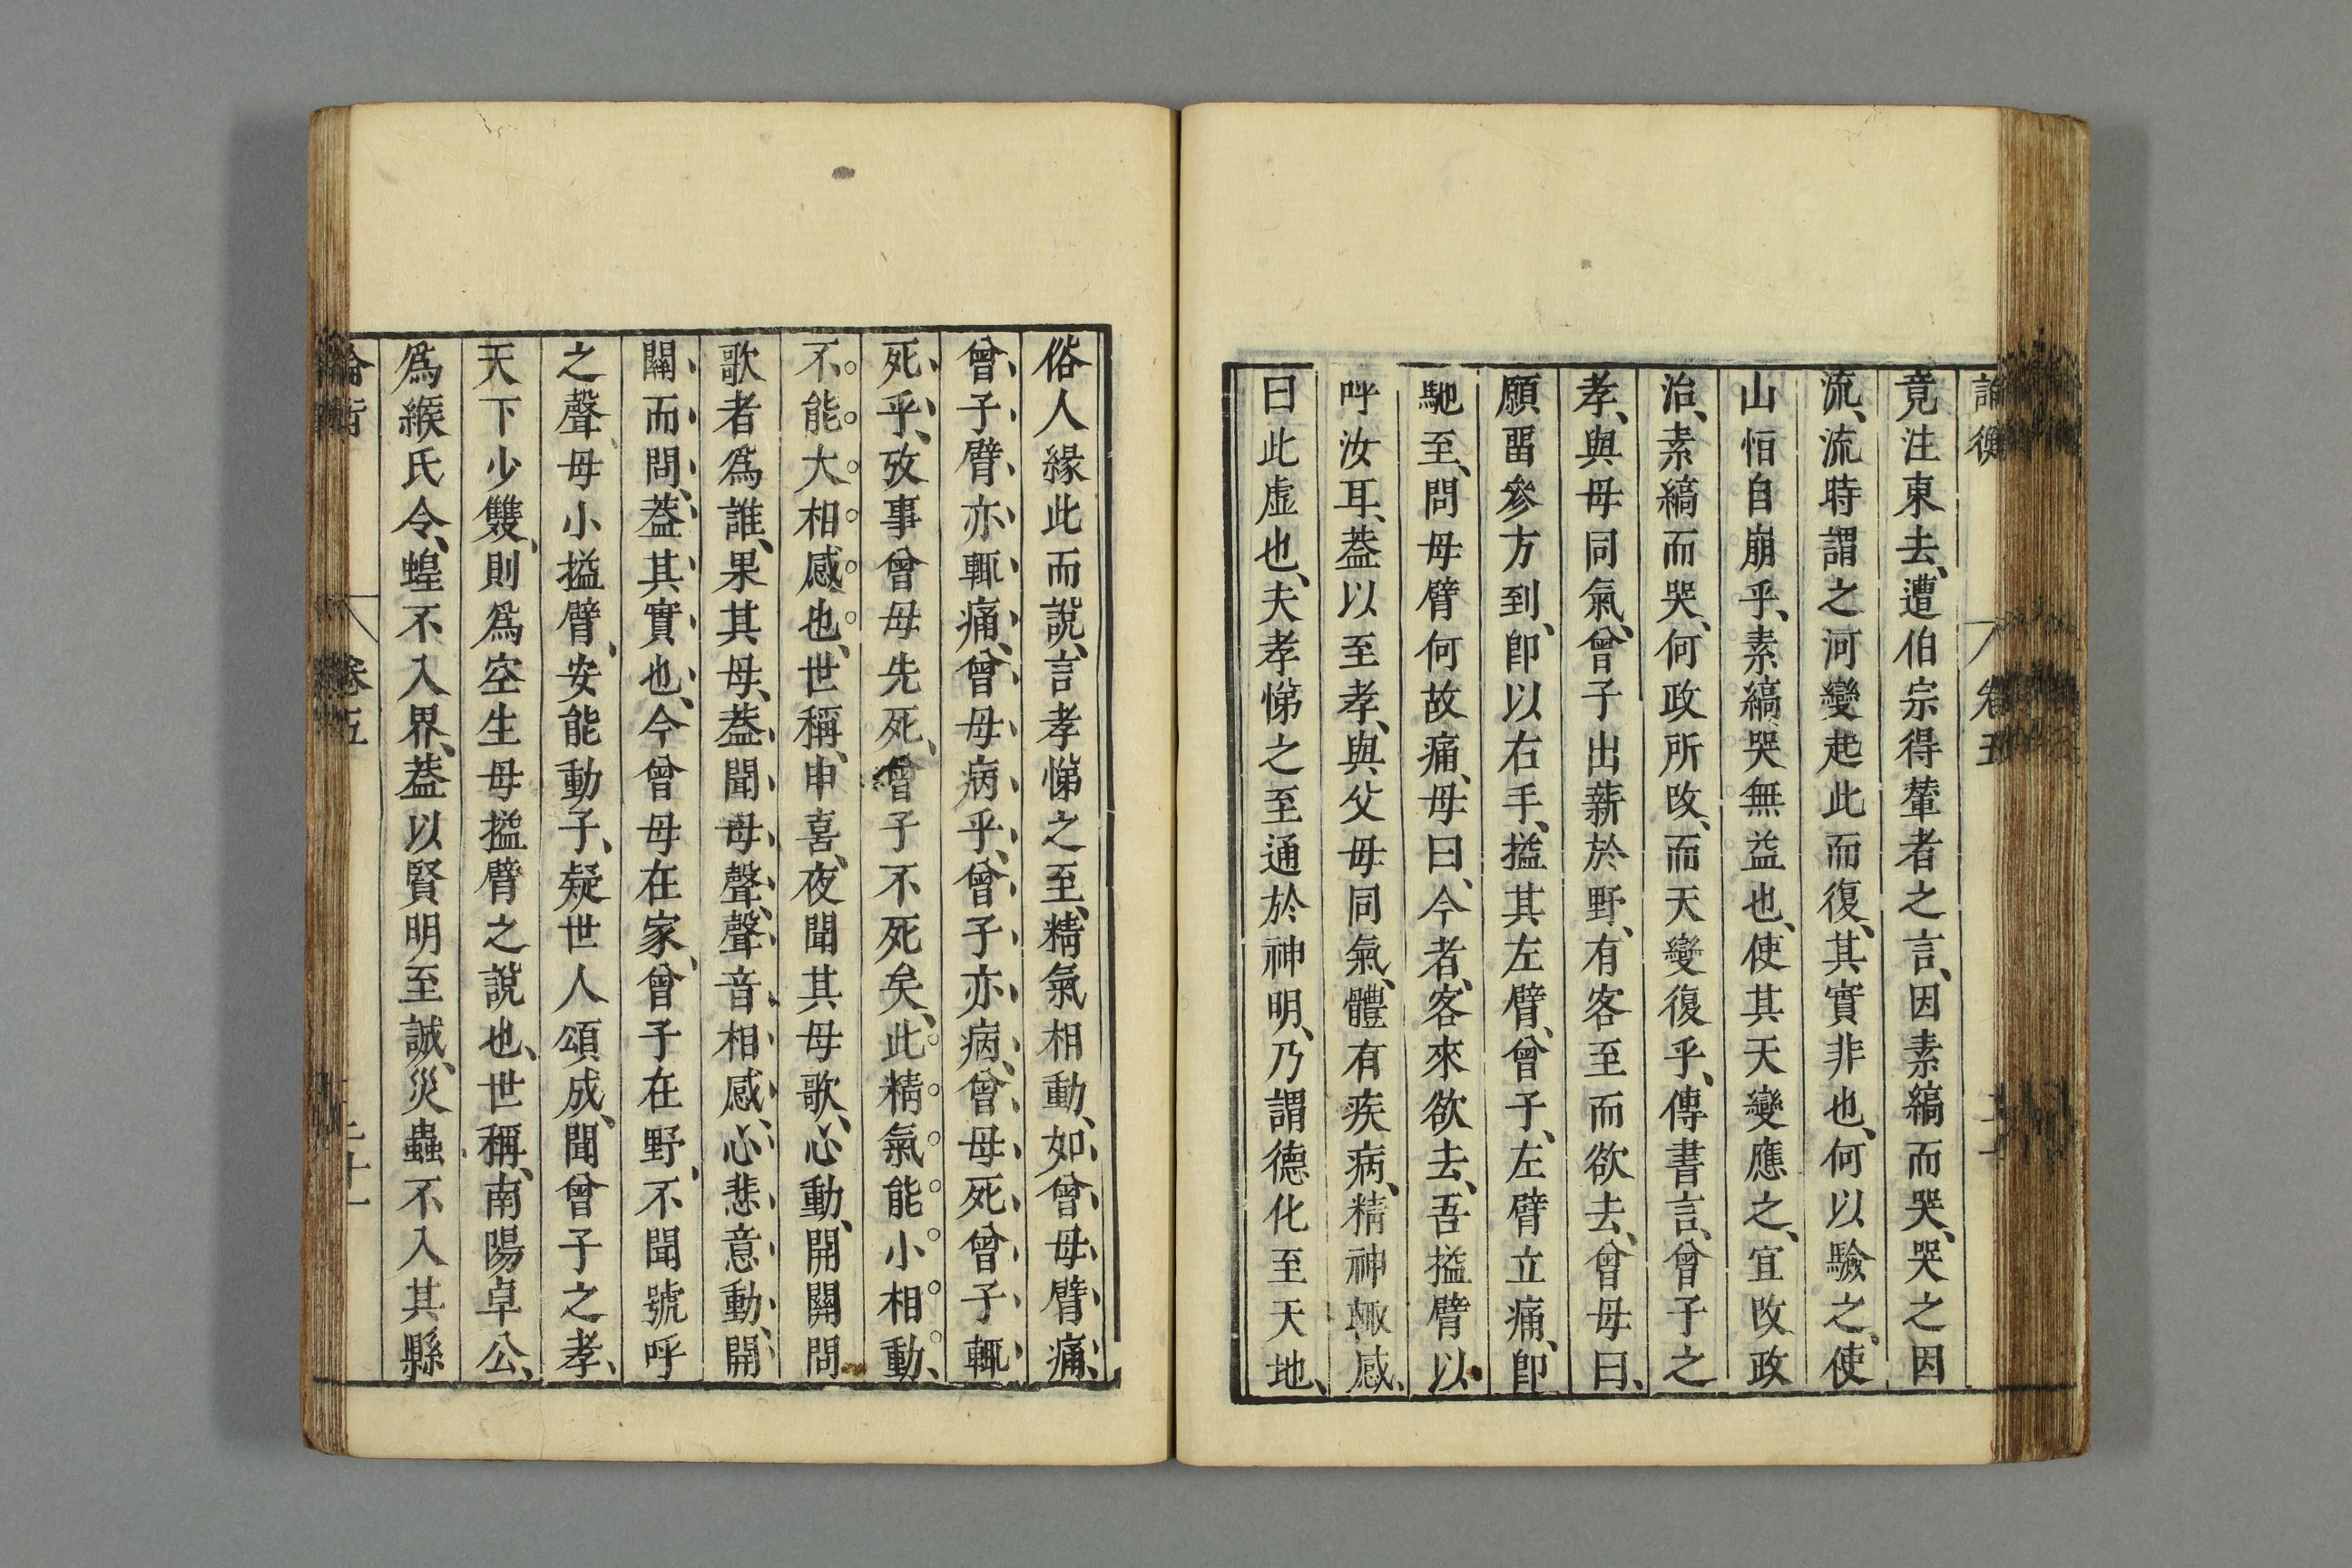 論衡 卷五
竟注東去、遭伯宗得輦者之言、因素縞而哭、哭之因
流、流時謂之河變起此而復、其實非也、何以驗之、使
山恒自崩乎、素縞哭無益也、使其天變應之、宜改政
治、素縞而哭、何政所改、而天變復乎、傳書言、曾子之
孝、與母同氣、曾子出薪於野、有客至而欲去、曾母曰、
願畱參方到、卽以右手、搤其左臂、曾子、左臂立痛、卽
馳至、問母臂何故痛、母曰、今者、客來欲去、吾搤臂以
呼汝耳、葢以至孝、與父母同氣、體有疾病、精神輙感、
曰此虛也、夫孝悌之至通於神明、乃謂德化至天地、
俗人緣此而說、言孝悌之至、精氣相動、如曾母臂痛、
曾子臂亦輒痛、曾母病乎、曾子亦病、曾母死曾子輒
死乎、攷事曾母先死、曾子不死矣、此精氣能小相動、
不能大相感也、世稱、申喜、夜聞其母歌、心動、開關問
歌者爲誰、果其母、葢聞母聲、聲音相感、心悲意動、開
關而問、葢其實也、今曾母在家、曾子在野、不聞號呼
之聲、母小搤臂、安能動子、疑世人頌成、聞曾子之孝、
天下少雙、則爲空生母搤臂之說也、世稱、南陽卓公、
爲緱氏令、蝗不入界、葢以賢明至誠、災蟲不入其縣
卷五